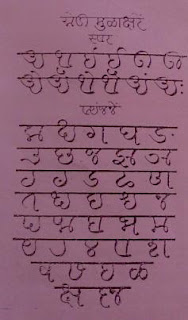 मोडी मुळाक्षरें
स्वर
𑘀 𑘁 𑘂 𑘃 𑘄 𑘅
𑘊 𑘋 𑘌 𑘍 𑘀𑘽 𑘀𑘾
व्यंजनें
𑘎 𑘏 𑘐 𑘑 𑘒
𑘓 𑘔 𑘕 𑘖 𑘗
𑘘 𑘙 𑘚 𑘛 𑘜
𑘝 𑘞 𑘟 𑘠 𑘡
𑘢 𑘣 𑘤 𑘥 𑘦
𑘧 𑘨 𑘩 𑘪 𑘫
𑘬 𑘭 𑘮 𑘯
𑘎𑘿𑘬 𑘕𑘿𑘗